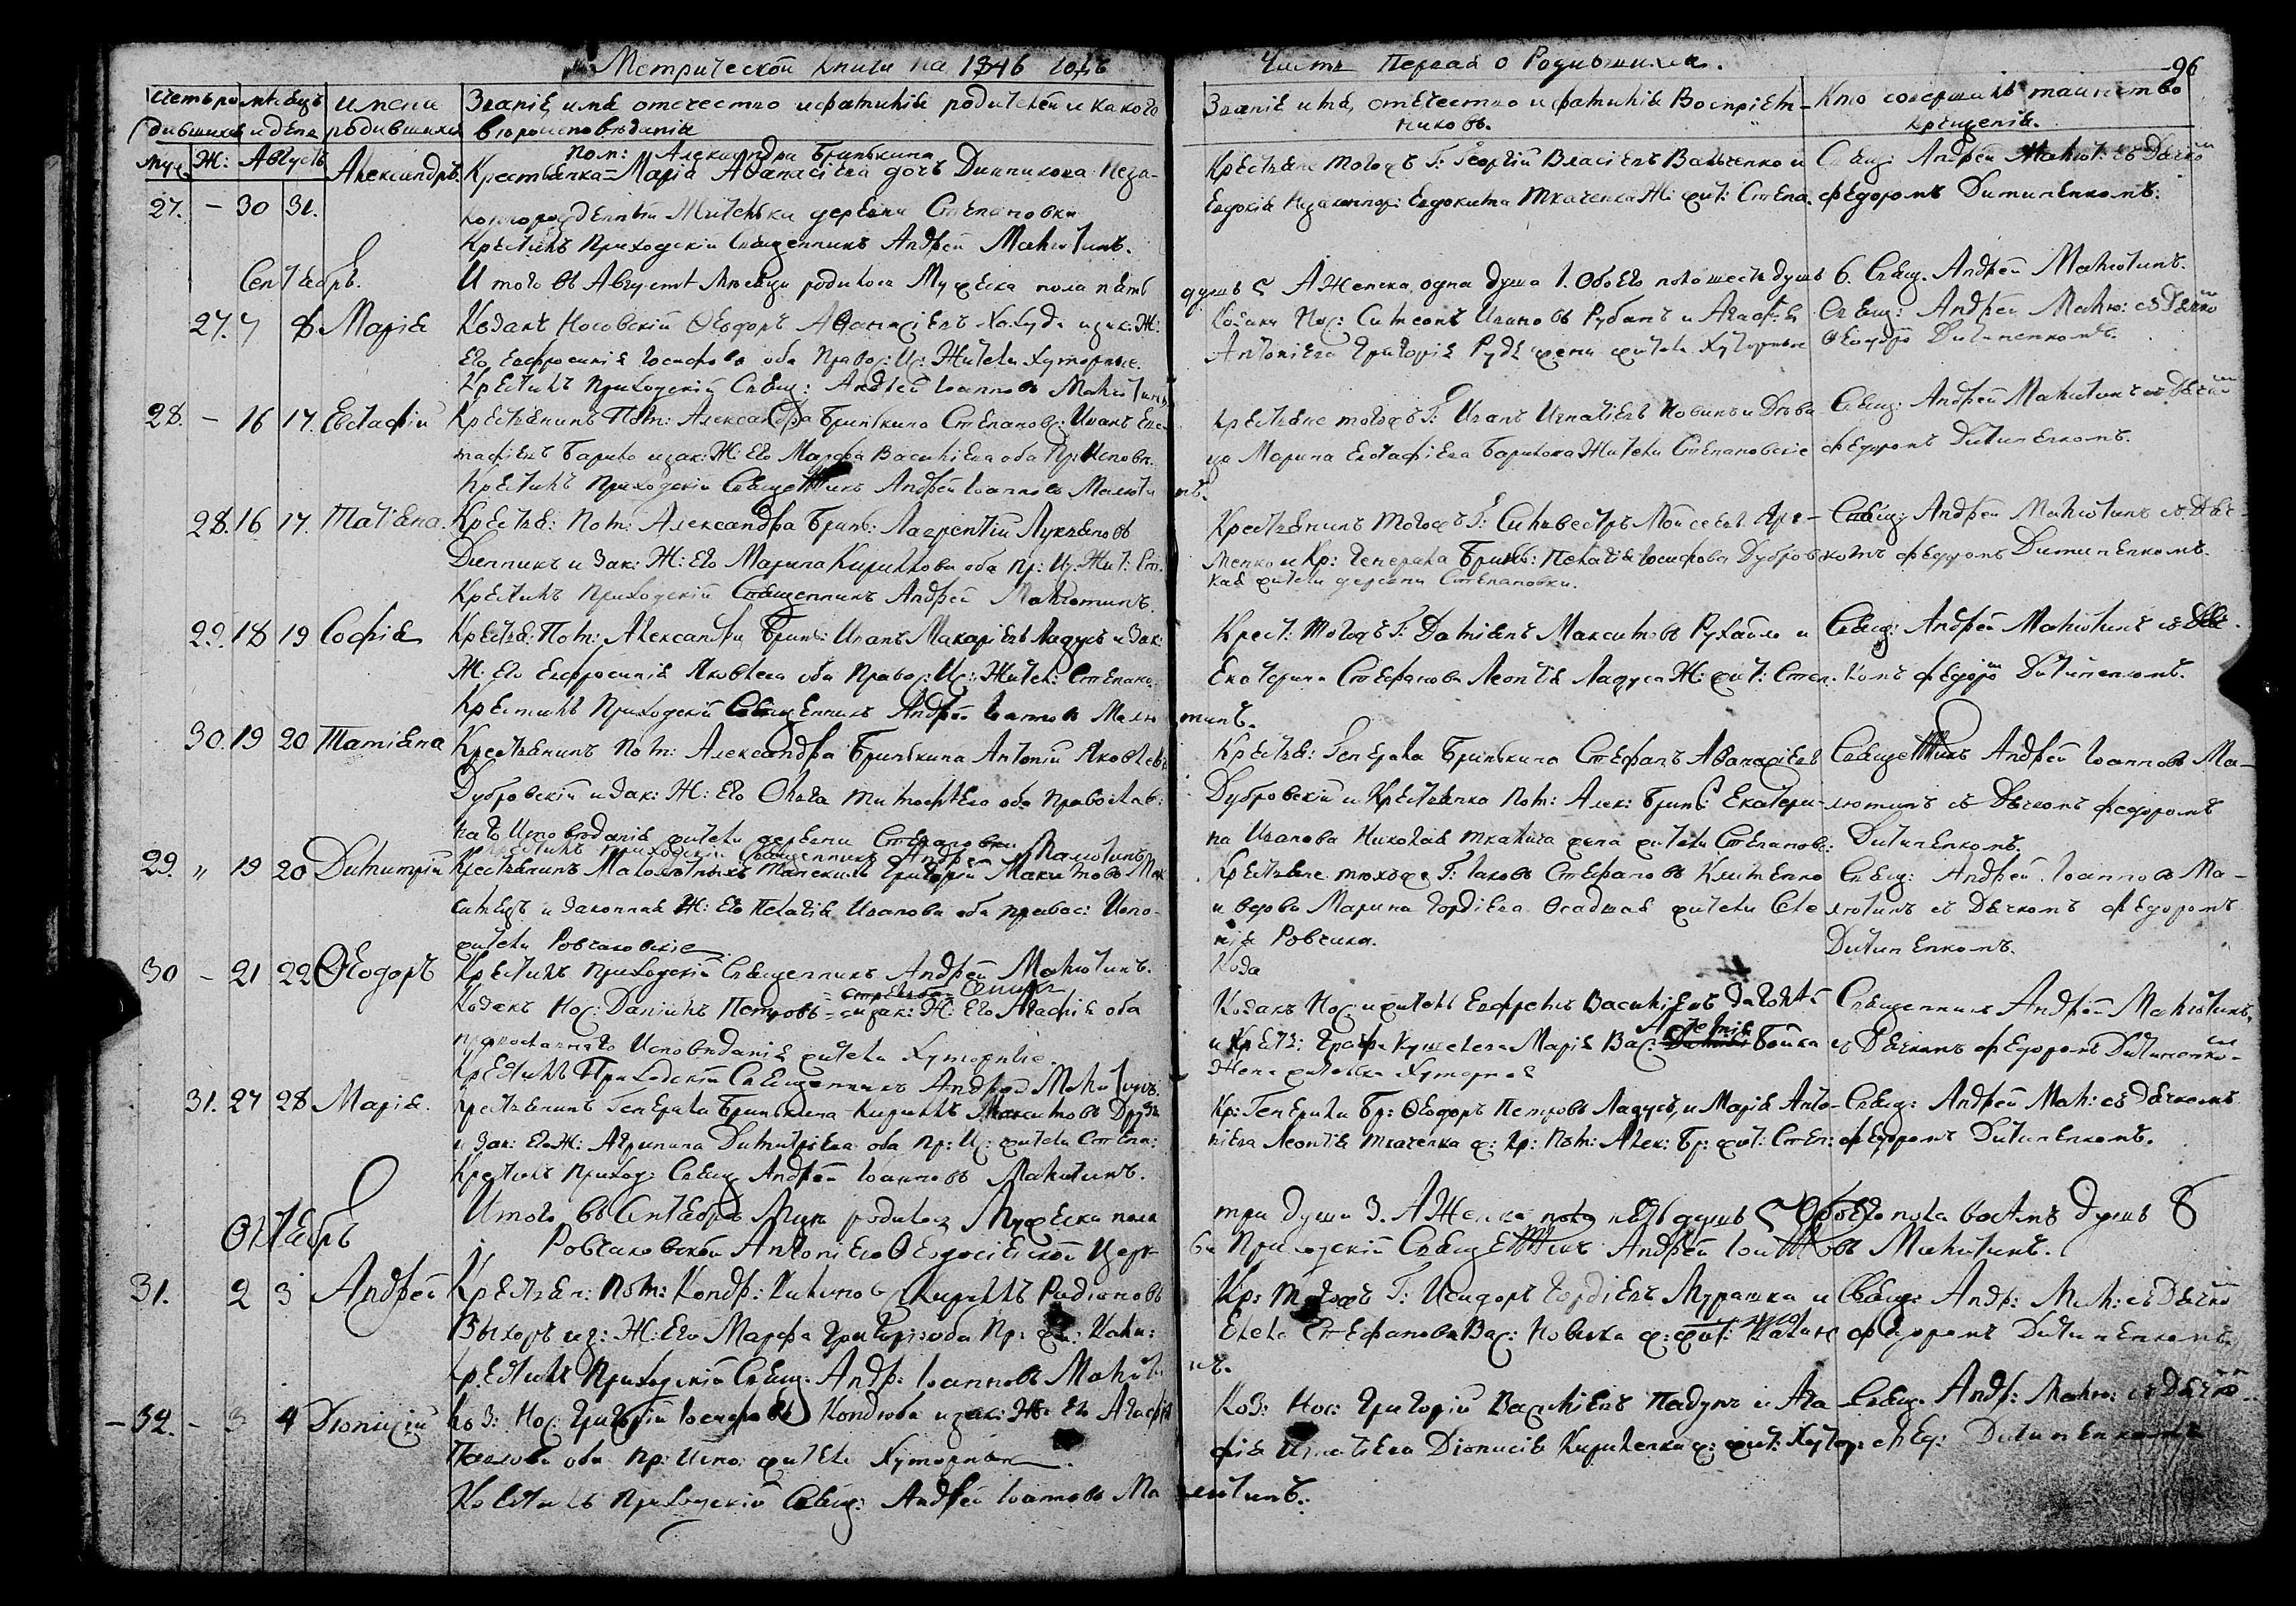 Метрической книги на 1846 годъ
Часть Первая о Родившихся.
96
Счетъ ро
дившихся
мѣсяцъ
и день
имена
родившихся
Званіе, имя отечество и фамилія родителей и какого
вѣроисповѣданія
Званіе имя, отечество и фамилія Воспріем-
никовъ.
Кто совершилъ таинство
крещенія.
Муж:
Ж:
Августъ
27. - 30 31.
Александръ.
пом: Александра Бринкина
Крестьянка Марія Аѳанасіева дочь Динникова Неза-
коннорожденный Жительки деревни Степановки
Крестилъ Приходскій Священникъ Андрей Малютинъ.
Крестьяне тогожъ Г: Георгій Власіевъ Вальченко и
Евдокія Евдокима Ткаченка Ж: жит: Степа.
Свящ: Андрей Малют: съ Дячко
Федоромъ Дитиненкомъ.
Сентябрь.
Итого въ Августѣ мѣсяцѣ родилось Мужеска пола пять
душъ 5 А Женска одна душа 1. Обоего пола шесть душъ 6. Свящ. Андрей Малютинъ.
27. 7 8 Марія
Козакъ Носовскій Ѳеодоръ Аѳанасіевъ и зак: Ж:
Его Евфросинія Іосифова оба Правос: Ис: Жители Хуторные.
Крестилъ Приходскій Свящ: Андрей Іоанновъ Малютинъ
Козаки Нос: Симеонъ Ивановъ Рубанъ и Агафія
Антоніева Григорія жена жители Хуторные
Свящ: Андрей Малю: съ Дячко
Ѳеодоро Дитиненкомъ.
28. - 16 17. Евстафій
Крестьянинъ Пом: Александра Бринкина Степанов: Иванъ Евс-
тафіевъ Барило и зак: Ж: Его Марфа Васильева оба Пр: Исповѣ.
Крестилъ Приходскій Священникъ Андрей Іоанновъ Малюти
нъ.
Крестьяне тогожъ Г: Иванъ Игнатіевъ Новикъ и Дѣви
ца Марина Евстафіева Барилова Жители Степановскіе
Свящ: Андрей Малютинъ съ Дячко
Федоромъ Дитиненкомъ.
28. 16 17. Татіана.
Крестья: Пом: Александра Бринк: Лаврентій Лукіановъ
Динникъ и зак: Ж: Его Марина Кириллова оба Пр: Ис: Жит: Ст.
Крестилъ Приходскій Священникъ Андрей Малютинъ.
Крестьянинъ тогожъ Г: Сильвестръ Моисеевъ
менко и Кр: Генерала Бринк: Пелагія Іосифова Дубров
кая жители деревни Степановки.
Свящ: Андрей Малютинъ съ Дяч-
комъ Федоромъ Дитиненкомъ.
29. 18 19 Софія
Крестья: Пом: Александра Бринк: Иванъ Макаріевъ Ладусъ и зак:
Ж: Его Евфросинія Яковлева оба Правос: Ис: Жители: Степано.
Крестилъ Приходскій Священникъ Андрей Іоанновъ Малю
тинъ.
Крест: тогожъ Г: Даміанъ Максимовъ Рухайло и
Екатерина Стефанова Леонтія Ладуса Ж: жит: Степ.
Свящ: Андрей Малютинъ съ Дяч
комъ Федоро Дитиненкомъ.
30. 19 20 Татіана
Крестьянинъ Пом: Александра Бринкина Антоній Яковлевъ
Дубровскій и зак: Ж: Его Ольга Тимофѣева оба Православ:
наго Исповѣданія жители деревни Степановки
Крестилъ Приходскій Священникъ Андрей Малютинъ
Крестья: Генерала Бринкина Стефанъ Аѳанасіевъ
Дубровскій и Крестьянка Пом: Алек: Бринк: Екатери-
на Иванова Николая Ткалича жена жители Степанов:
Священникъ Андрей Іоанновъ Ма-
лютинъ съ Дячкомъ Федоромъ
Дитиненкомъ.
29. „ 19 20 Димитрій
Крестьянинъ Малолѣтныхъ Григорій Макимовъ Мак
симецъ и Законная Ж: Его Пелагія Иванова оба правос: Испо-
жители Ровчаковскіе
Крестьяне тѣхъже Г: Іаковъ Стефановъ Клименко
и вдова Марина Гордіева Осадшая жители Селе
нія Ровчака.
Свящ: Андрей Іоанновъ Ма-
лютинъ съ Дячкомъ Федоромъ
Дитиненкомъ.
30 - 21 22 Ѳеодоръ
Крестилъ Приходскій Священникъ Андрей Малютинъ.
Козакъ Нос: Даніилъ Петровъ и зак: Ж: Его Агафія оба
православнаго Исповѣданія жители Хуторные.
Крестилъ Приходскій Священникъ Андрей Малютинъ.
Коза
Козакъ Нос: и житель Евфремъ Васильевъ
и Крестья: Графа Кушелева Марія Вас: Бойка
Жена жителька Хуторная
Священникъ Андрей Малютинъ,
съ Дячкомъ Федоромъ Дитиненко-
31. 27 28 Марія.
Крестьянинъ Генерала Бринкина Кириллъ Максимовъ
и Зак: Его Ж: Агрипина Димитріева оба Пр: Ис: жители Степа:
Крестилъ Приход: Свящ Андрей Іоанновъ Малютинъ.
Кр: Генерала Бр: Ѳеодоръ Петровъ Ладусъ, и Марія Анто-
ніева Леонтія Ткаченка ж: Кр: Пом: Алек: Бр: жит: Степ:
Свящ: Андрей Мал: съ Дячкомъ
Федоромъ Дитиненкомъ.
Октябрь
Итого въ Сентябрѣ Мцѣ родилось Мужеска пола
три души 3. А Женска пола пять душъ 5 Обоего пола восемь душъ 8
Ровчаковской Антоніево Ѳеодосіевской Церк-
ви Приходскій Священникъ Андрей Іоанновъ Малютинъ.
31. 2 3 Андрей
Крестьян: Пом: Кондр: Кириллъ Родіоновъ
Выхоръ из: Ж: Его Марфа Григорі: оба Пр:
Крестилъ Приходскій Свящ. Андр: Іоанновъ Малюти
нъ.
Кр: тогожъ Г: Исидоръ Гордіевъ Мурашка и
Елена Стефанова Вас: Новика ж: жит:
Свящ: Андр: Мал: съ Дячко
Федоромъ Дитиненкомъ.
- 32. - 3 4 Діонисій
Коз: Нос: Григорій Іосифовъ Кондюба и зак: Ж: Его Агафія
Павлова оба Пр: Испо: жители Хуторные.
Крестилъ Приходскій Свящ: Андрей Іоанновъ Ма
лютинъ.
Коз: Нос: Григорій Васильевъ Падунъ и Ага
фія Игнатіева Діонисія Кириленка ж: жит: Хутор:
Свящ. Андр: Малю: съ Дячко
Фед: Дитиненкомъ